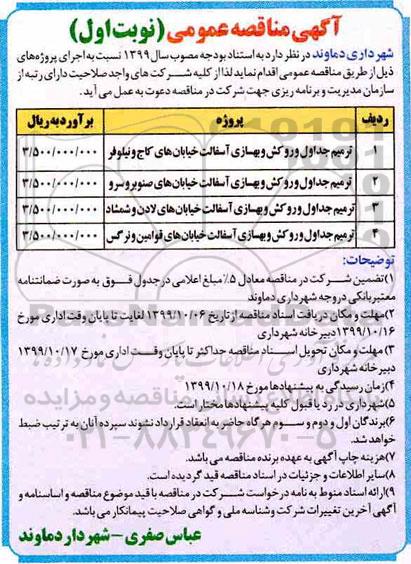 آگهی مناقصه عمومی (نوبت اول)
شهرداری دماوند در نظر دارد به استناد بودجه مصوب سال ۱۳۹۹ نسبت به اجرای پروژه‌های
ذیل از طریق مناقصه عمومی اقدام نماید لذا از کلیه شرکت‌های واجد صلاحیت دارای رتبه از
سازمان مدیریت و برنامه ریزی جهت شرکت در مناقصه دعوت به عمل می آید.
ردیف پروژه برآورد به ریال
۱ ترمیم جداول و روکش و بهسازی آسفالت خیابان های کاج و نیلوفر ۳/۵۰۰/۰۰۰/۰۰۰
۲ ترمیم جداول و روکش و بهسازی آسفالت خیابان های صنوبر و سرو ۳/۵۰۰/۰۰۰/۰۰۰
۳ ترمیم جداول و روکش و بهسازی آسفالت خیابان های لادن و شمشاد ۳/۵۰۰/۰۰۰/۰۰۰
۴ ترمیم جداول و روکش و بهسازی آسفالت خیابان های قوامین و نرگس ۳/۵۰۰/۰۰۰/۰۰۰
توضیحات:
۱) تضمین شرکت در مناقصه معادل ۵٪ مبلغ اعلامی در جدول فوق به صورت ضمانتنامه
معتبر بانکی در وجه شهرداری دماوند
۲) مهلت و مکان دریافت اسناد مناقصه از تاریخ ۱۳۹۹/۱۰/۰۶ لغایت تا پایان وقت اداری مورخ
۱۳۹۹/۱۰/۱۶ دبیرخانه شهرداری
۳) مهلت و مکان تحویل اسناد مناقصه حداکثر تا پایان وقت اداری مورخ ۱۳۹۹/۱۰/۱۷
دبیرخانه شهرداری
۴) زمان رسیدگی به پیشنهادها مورخ ۱۳۹۹/۱۰/۱۸
۵) شهرداری در رد یا قبول کلیه پیشنهادها مختار است.
۶) برندگان اول و دوم و سوم هرگاه حاضر به انعقاد قرارداد نشوند سپرده آنان به ترتیب ضبط
خواهد شد.
۷) هزینه چاپ آگهی به عهده برنده مناقصه می باشد.
۸) سایر اطلاعات و جزئیات در اسناد مناقصه قید گردیده است.
۹) ارائه اسناد منوط به نامه درخواست شرکت در مناقصه با قید موضوع مناقصه و اساسنامه و
آگهی آخرین تغییرات شرکت و شناسه ملی و گواهی صلاحیت پیمانکار می باشد.
عباس صفری - شهردار دماوند
۰۲۱-۸۸۳۴۹۶۷۰-۵